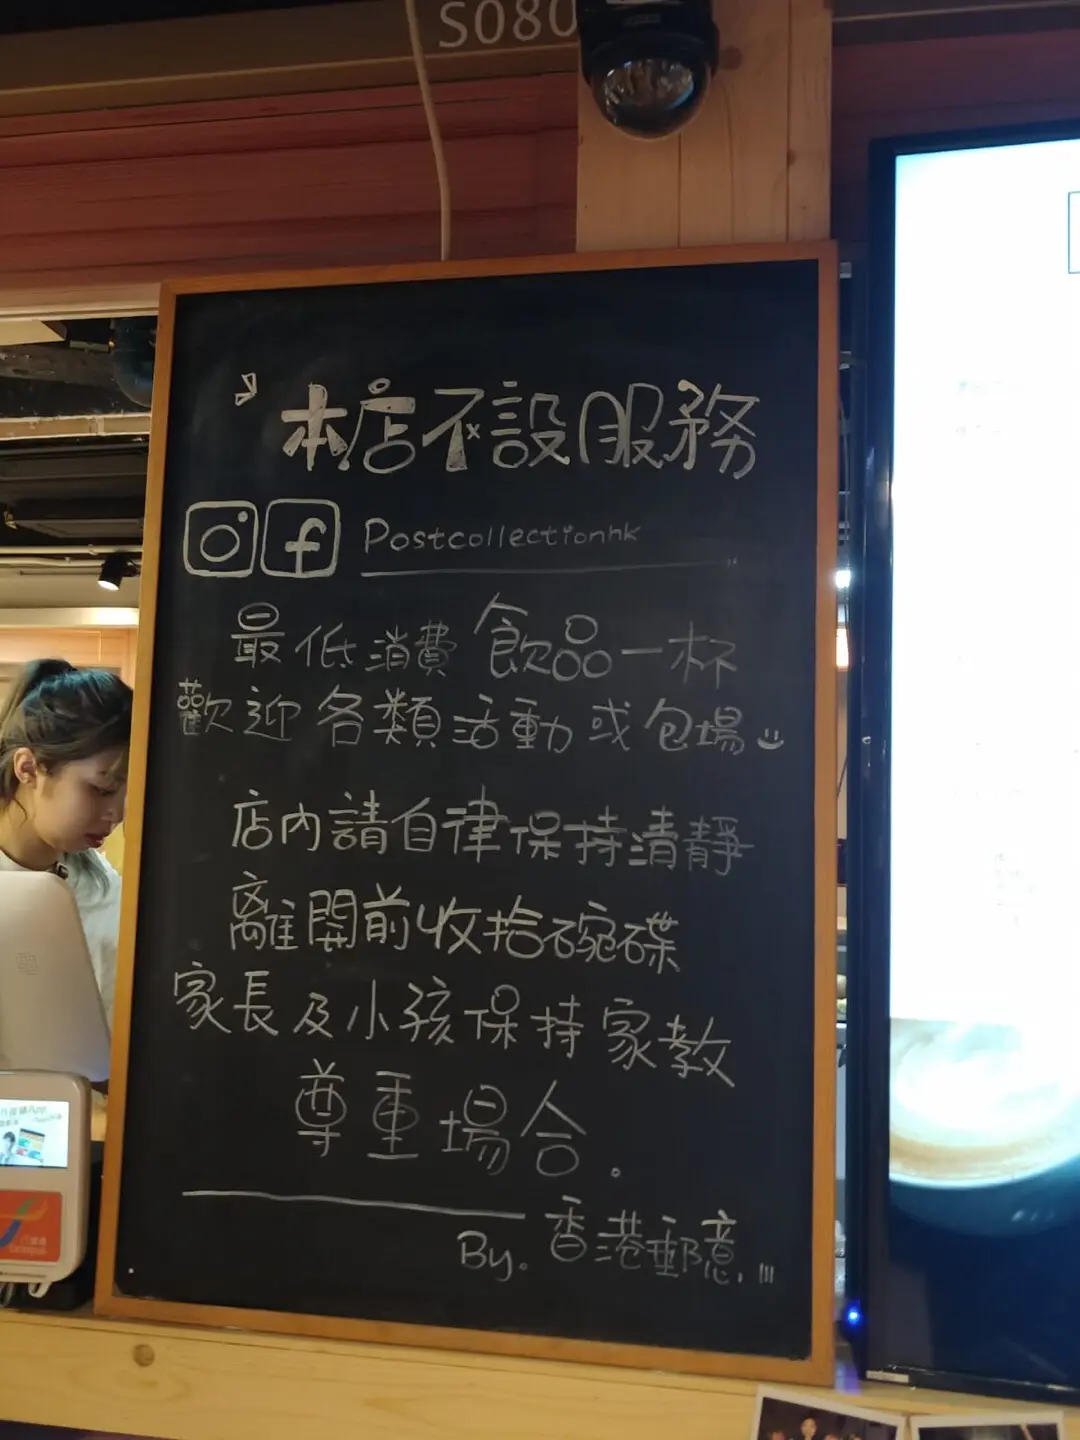 S080
本店不設服務
Postcollectionhk
最低消費 飲品一杯
歡迎各類活動或包場
店內請自律保持清靜
離開前收拾碗碟
家長及小孩保持家教
尊重場合。
By. 香港郵意